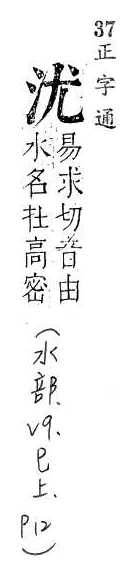 37
正字通
沋
易求切音由
水名在高密
(水部.V9.巳上.P12)